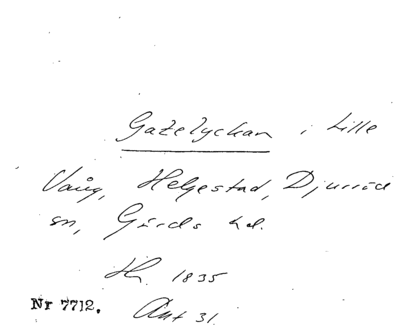 Gatelyckan i Lille
Vång, Helgestad, Djurröd
sn, Gärds hd.
Hh. 1835
Nr 7712. Akt 31.